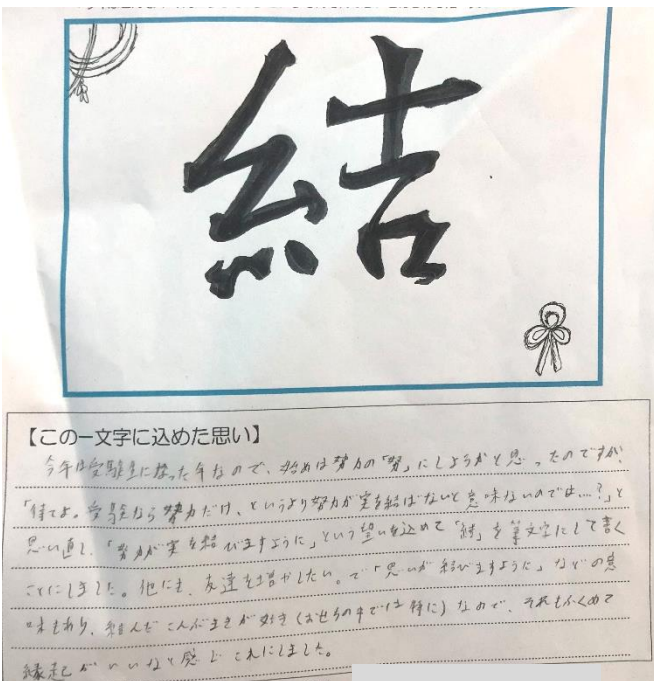 結
【この一文字に込めた思い】
今年は受験生になった年なので、始めは努力の「努」にしようかと思ったのですが、
「待てよ。受験なら努力だけ、というより努力が実を結ばないと意味ないのでは…?」と
思い直し、「努力が実を結びますように」という望いを込めて「結」を筆文字にして書く
ことにしました。他にも、友達を増やしたい。で「思いが結びますように」などの意
味もあり、結んだこんぶまきが好き(おせちの中では特に)なので、それもふくめて
縁起がいいなと感じこれにしました。